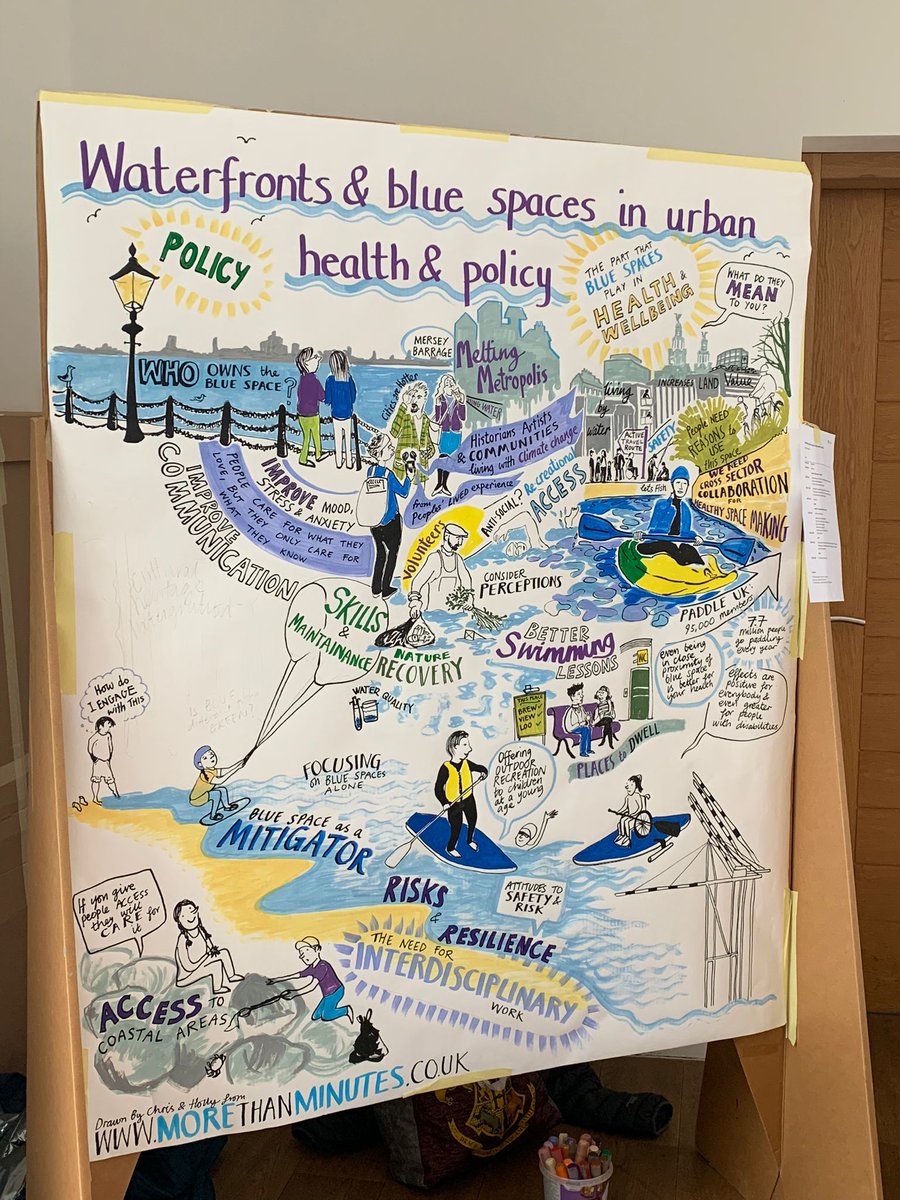 Waterfronts & blue spaces in urban
health & policy
POLICY
THE PART THAT
BLUE SPACES
PLAY IN
HEALTH &
WELLBEING
WHAT DO THEY
MEAN
TO YOU?
MERSEY
BARRAGE
Melting
Metropolis
WHO OWNS the
BLUE SPACE?
Cities are Hotter
living
by
water
INCREASES LAND Value
ACTIVE
TRAVEL
ROUTE
SAFETY
People NEED
REASONS to
USE
this space
Historians Artists
& COMMUNITIES
living with Climate change
from
Peoples' LIVED experience
WE NEED
CROSS SECTOR
COLLABORATION
FOR
HEALTHY SPACE MAKING
let's Fish
IMPROVE
COMMUNICATION
IMPROVE MOOD,
STRESS & ANXIETY
PEOPLE CARE FOR WHAT THEY
LOVE, BUT THEY ONLY CARE FOR
WHAT THEY KNOW
Volunteers
ANTI-SOCIAL?
Recreational
ACCESS
CONSIDER
PERCEPTIONS
PADDLE UK:
95,000 members
7.7
million people
go paddling
every year
SKILLS
&
MAINTAINANCE
NATURE
RECOVERY
BETTER
Swimming
LESSONS
even being
in close
proximity of
blue space
is better for
your health
effects are
positive for
everybody &
even greater
for people
with disabilities
WATER QUALITY
THIS PLACE
BREW ✓
VIEW ✓
LOO ✓
WC
PLACES to DWELL
How do
I ENGAGE
with THIS
FOCUSING
on BLUE SPACES
ALONE
Offering
OUTDOOR
RECREATION
to children
at a young
age
BLUE SPACE as a
MITIGATOR
RISKS
&
RESILIENCE
ATTITUDES TO
SAFETY &
RISK
If you give
people ACCESS
they will
CARE for
it
THE NEED FOR
INTERDISCIPLINARY
WORK
ACCESS TO
COASTAL AREAS
Drawn By Chris & Holly from
WWW.MORETHANMINUTES.CO.UK